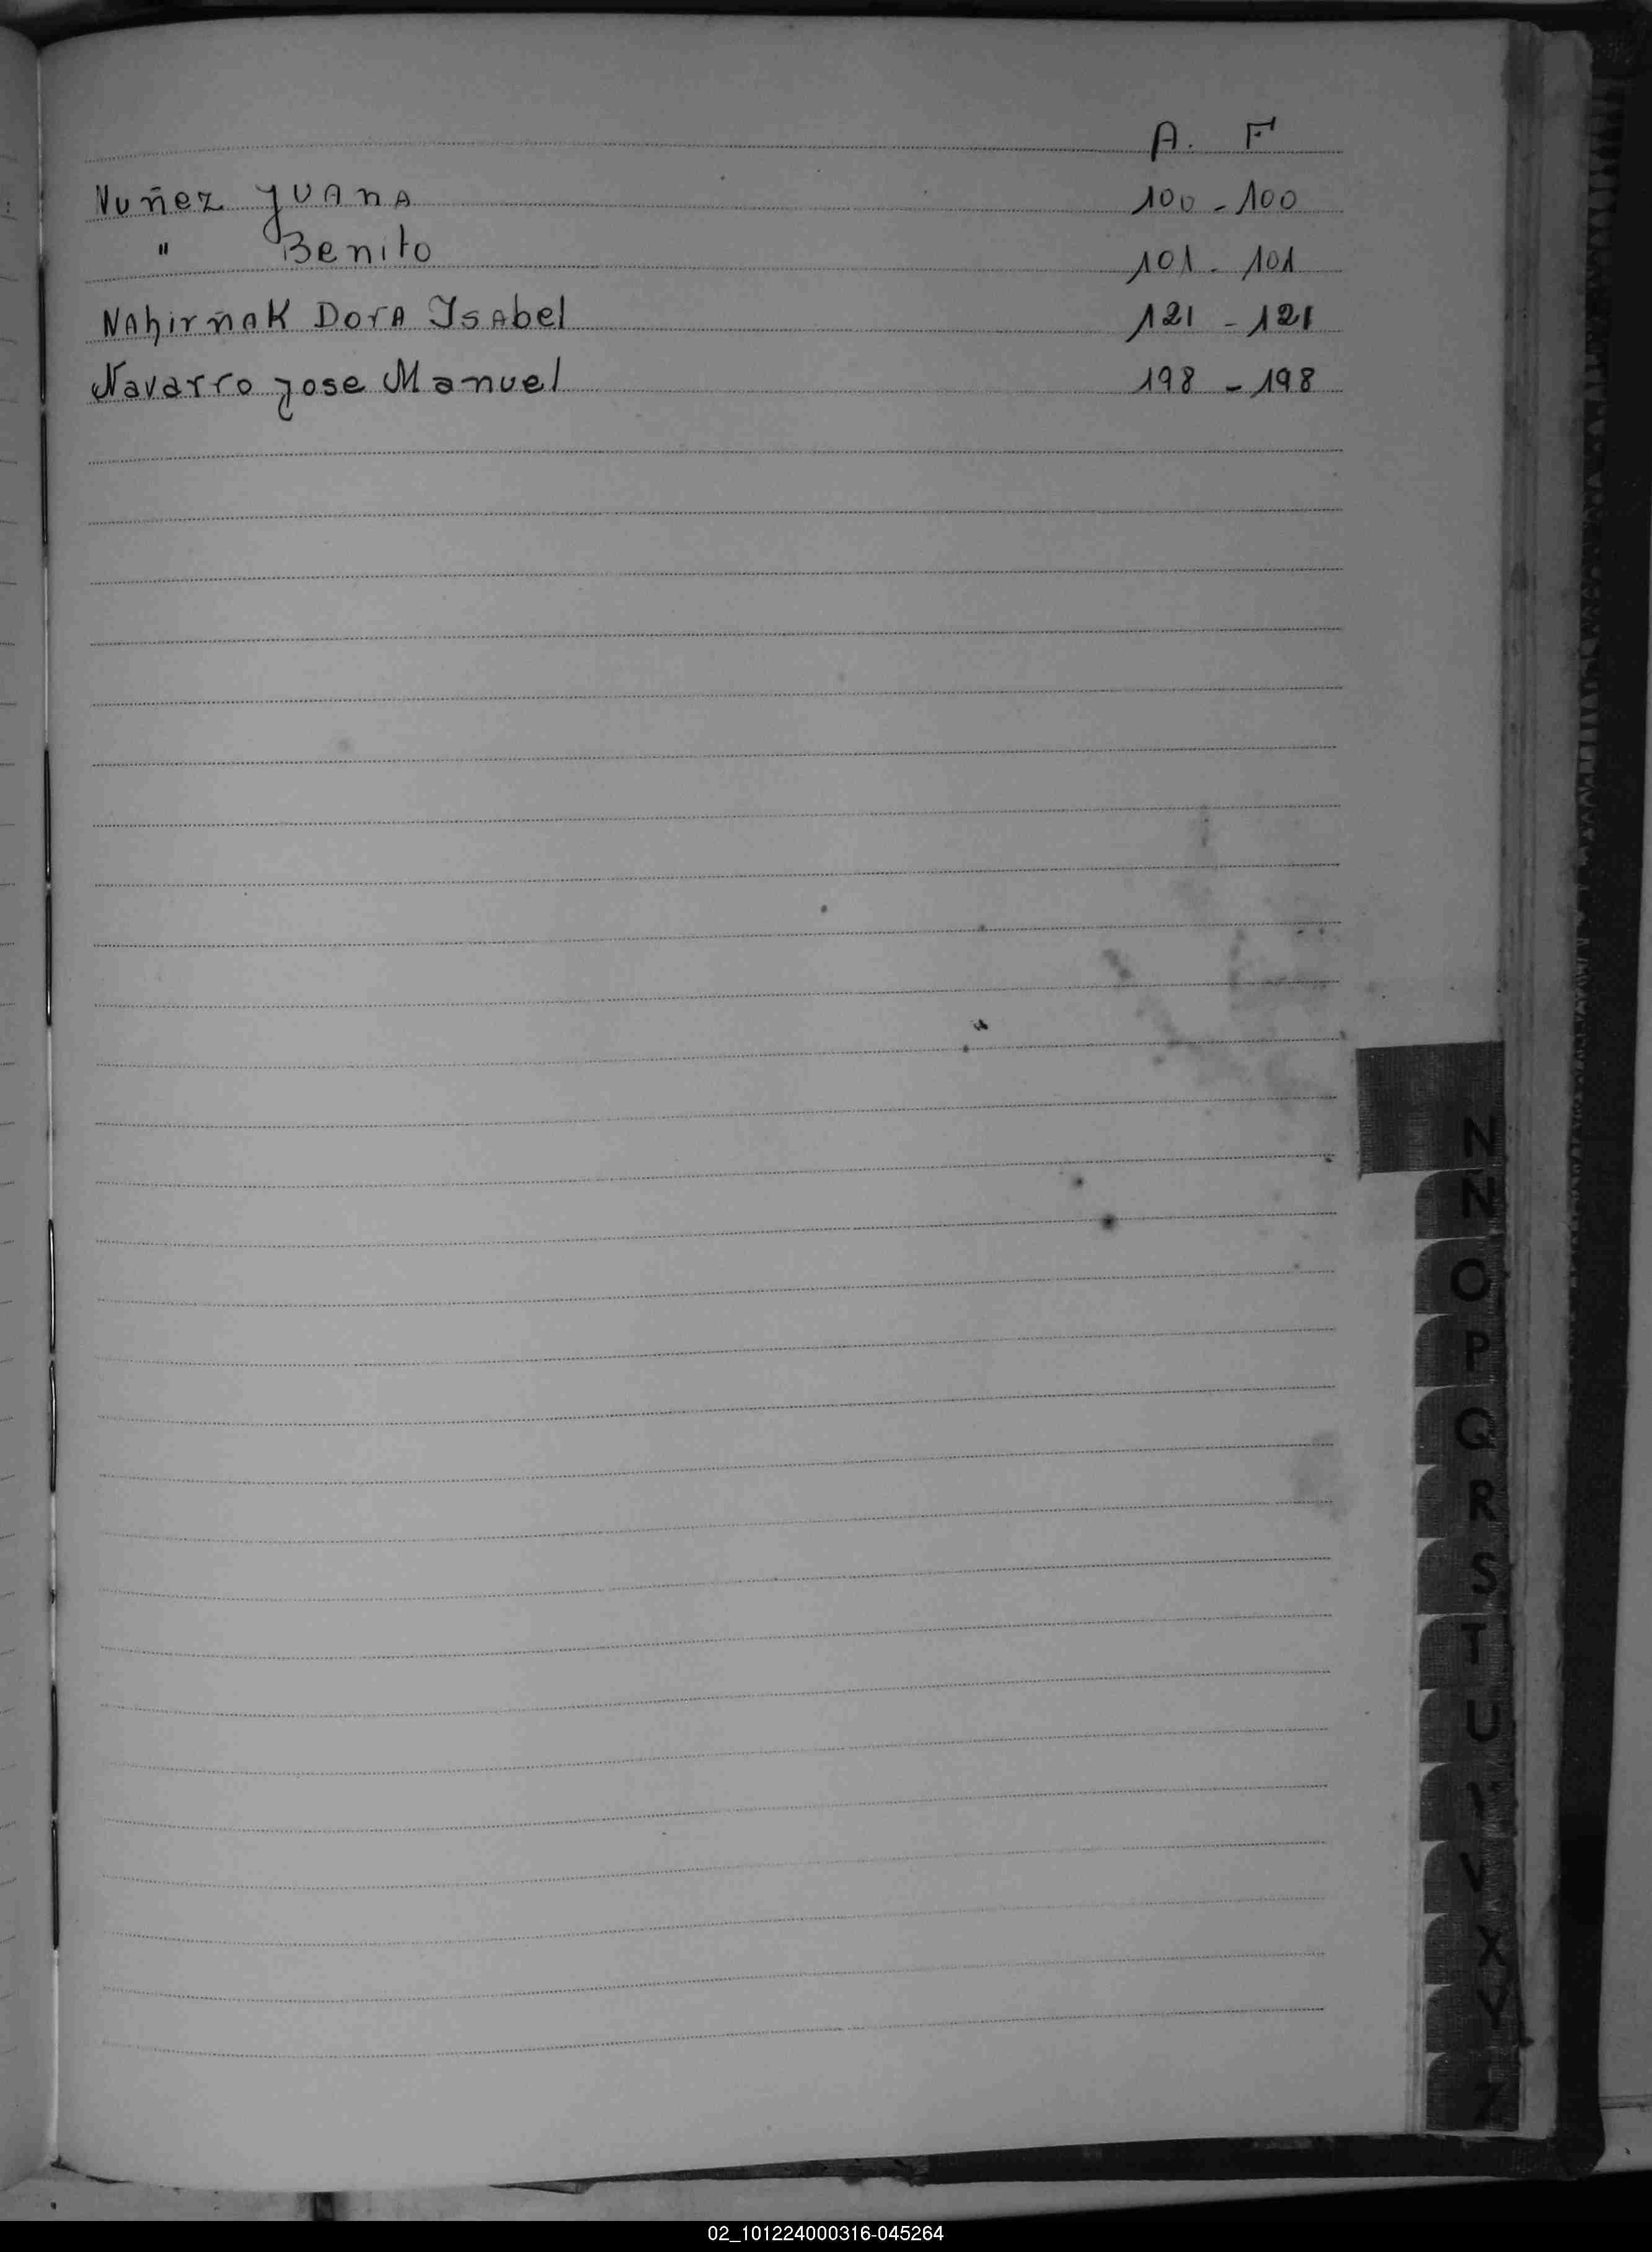 A. F
Nuñez Juana 100 - 100
" Benito 101 - 101
Nahirñak Dora Isabel 121 - 121
Navarro Jose Manuel 198 - 198
N
Ñ
O
P
Q
R
S
T
U
V
X
Y
Z
02_101224000316-045264